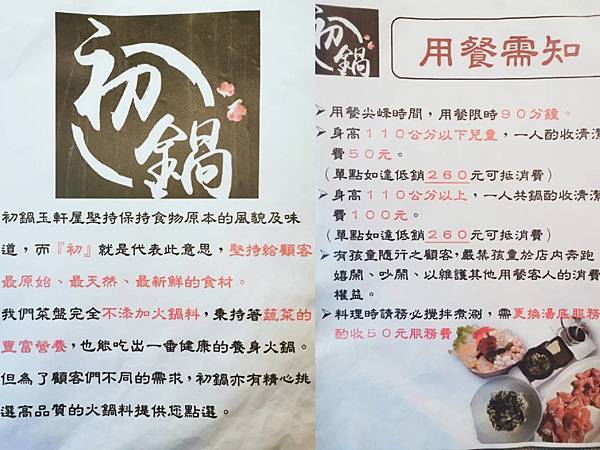 初鍋
初鍋玉軒屋堅持保持食物原本的風貌及味
道,而『初』就是代表此意思,堅持給顧客
最原始、最天然、最新鮮的食材。
我們菜盤完全不添加火鍋料,秉持著蔬菜的
豐富營養,也能吃出一番健康的養身火鍋。
但為了顧客們不同的需求,初鍋亦有精心挑
選高品質的火鍋料提供您點選。
初鍋
用餐需知
➢用餐尖峰時間,用餐限時90分鐘。
➢身高110公分以下兒童,一人酌收清潔
費50元。
(單點如達低銷260元可抵消費)
➢身高110公分以上,一人共鍋酌收清潔
費100元。
(單點如達低銷260元可抵消費)
➢有孩童隨行之顧客,嚴禁孩童於店內奔跑
嬉鬧、吵鬧、以維護其他用餐客人的消費
權益。
➢料理時請務必攪拌煮涮,需更換湯底服務
酌收50元服務費